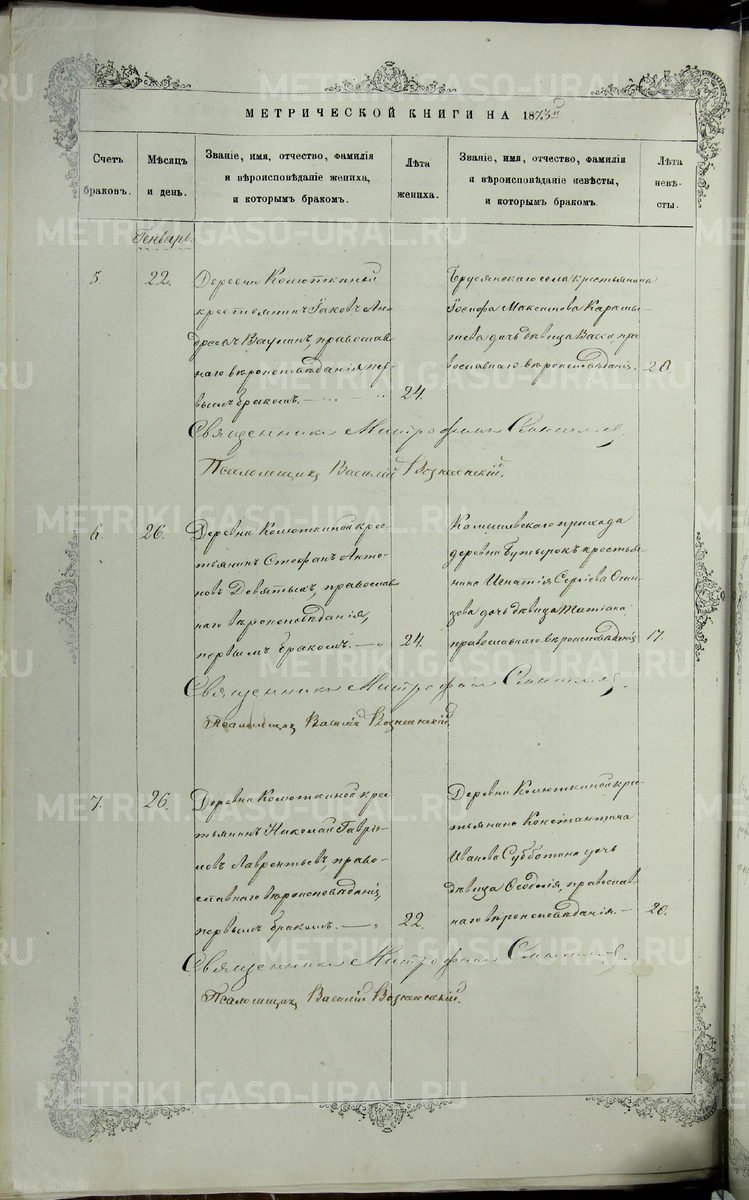 МЕТРИЧЕСКОЙ КНИГИ НА 1873й
Счетъ
браковъ.
Мѣсяцъ
и день.
Званіе, имя, отчество, фамилія
и вѣроисповѣданіе жениха,
и которымъ бракомъ.
Лѣта
жениха.
Званіе, имя, отчество, фамилія
и вѣроисповѣданіе невѣсты,
и которымъ бракомъ
Лѣта
невѣ-
сты.
Генварь.
5
22.
Деревни Колюткиной
крестьянинъ Іаковъ Ан-
дреевъ Ваулинъ, православ
наго вѣроисповѣданія пер-
вымъ бракомъ.
24.
села крестьянина
Іосифа Максимова
дочь дѣвица Васса, пра
вославнаго вѣроисповѣданія.
20.
Священникъ Митрофанъ
Псаломщикъ Василій Вознесенскій.
6.
26.
Деревни Колюткиной крес-
тьянинъ Стефанъ Анто-
новъ Девятыхъ, православ
наго вѣроисповѣданія,
первымъ бракомъ.
24.
Камышевскаго прихода
деревни Бутырокъ крестья-
нина Игнатія Сергіева
дочь дѣвица Татіана
православнаго вѣроисповѣданія
17.
Священникъ Митрофанъ
Псаломщикъ Василій Вознесенскій.
7.
26.
Деревни Колюткиной крес-
тьянинъ Николай Гаврі-
ловъ Лаврентьевъ, право-
славнаго вѣроисповѣданія,
первымъ бракомъ.
22.
Деревни Колюткиной крес-
тьянина Константина
Иванова Субботина дочь
дѣвица Ѳеодосія, православ-
наго вѣроисповѣданія.
20.
Священникъ Митрофанъ
Псаломщикъ Василій Вознесенскій.
METRIKI.GASO-URAL.RU
METRIKI.GASO-URAL.RU
METRIKI.GASO-URAL.RU
METRIKI.GASO-URAL.RU
METRIKI.GASO-URAL.RU
METRIKI.GASO-URAL.RU
METRIKI.GASO-URAL.RU
METRIKI.GASO-URAL.RU